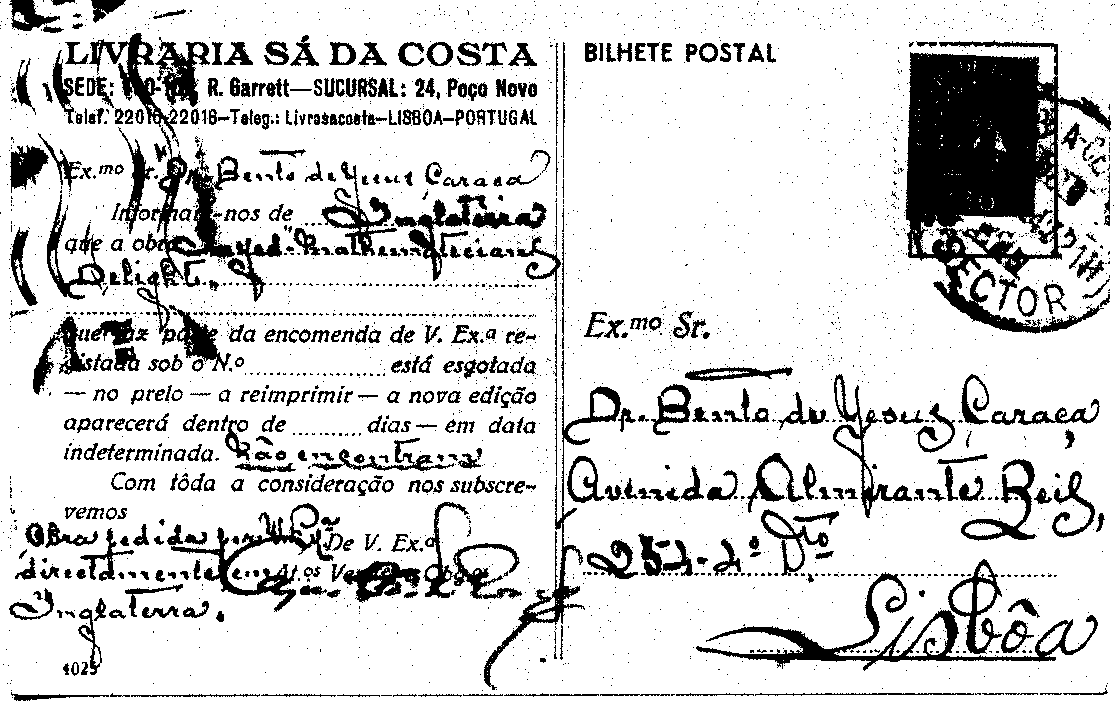 LIVRARIA SÁ DA COSTA
SEDE: R. Garrett—SUCURSAL: 24, Poço Novo
Telef. 22016-22018—Teleg.: Livrosacosta—LISBOA—PORTUGAL
Ex.mo Sr. Dr. Bento de Jesus Caraça
Informam-nos de Inglaterra
que a obra
Delight"
da encomenda de V. Ex.ª re-
gistada sob o N.º está esgotada
— no prelo — a reimprimir — a nova edição
aparecerá dentro de ........ dias — em data
indeterminada. Não encontram
Com tôda a consideração nos subscre-
vemos
Obra pedida por V. Ex.ª
De V. Ex.ª
directamente em At.os
Inglaterra.
4025
BILHETE POSTAL
SECTOR
Ex.mo Sr.
Dr. Bento de Jesus Caraça,
Avenida Almirante Reis,
Dto
Lisbôa